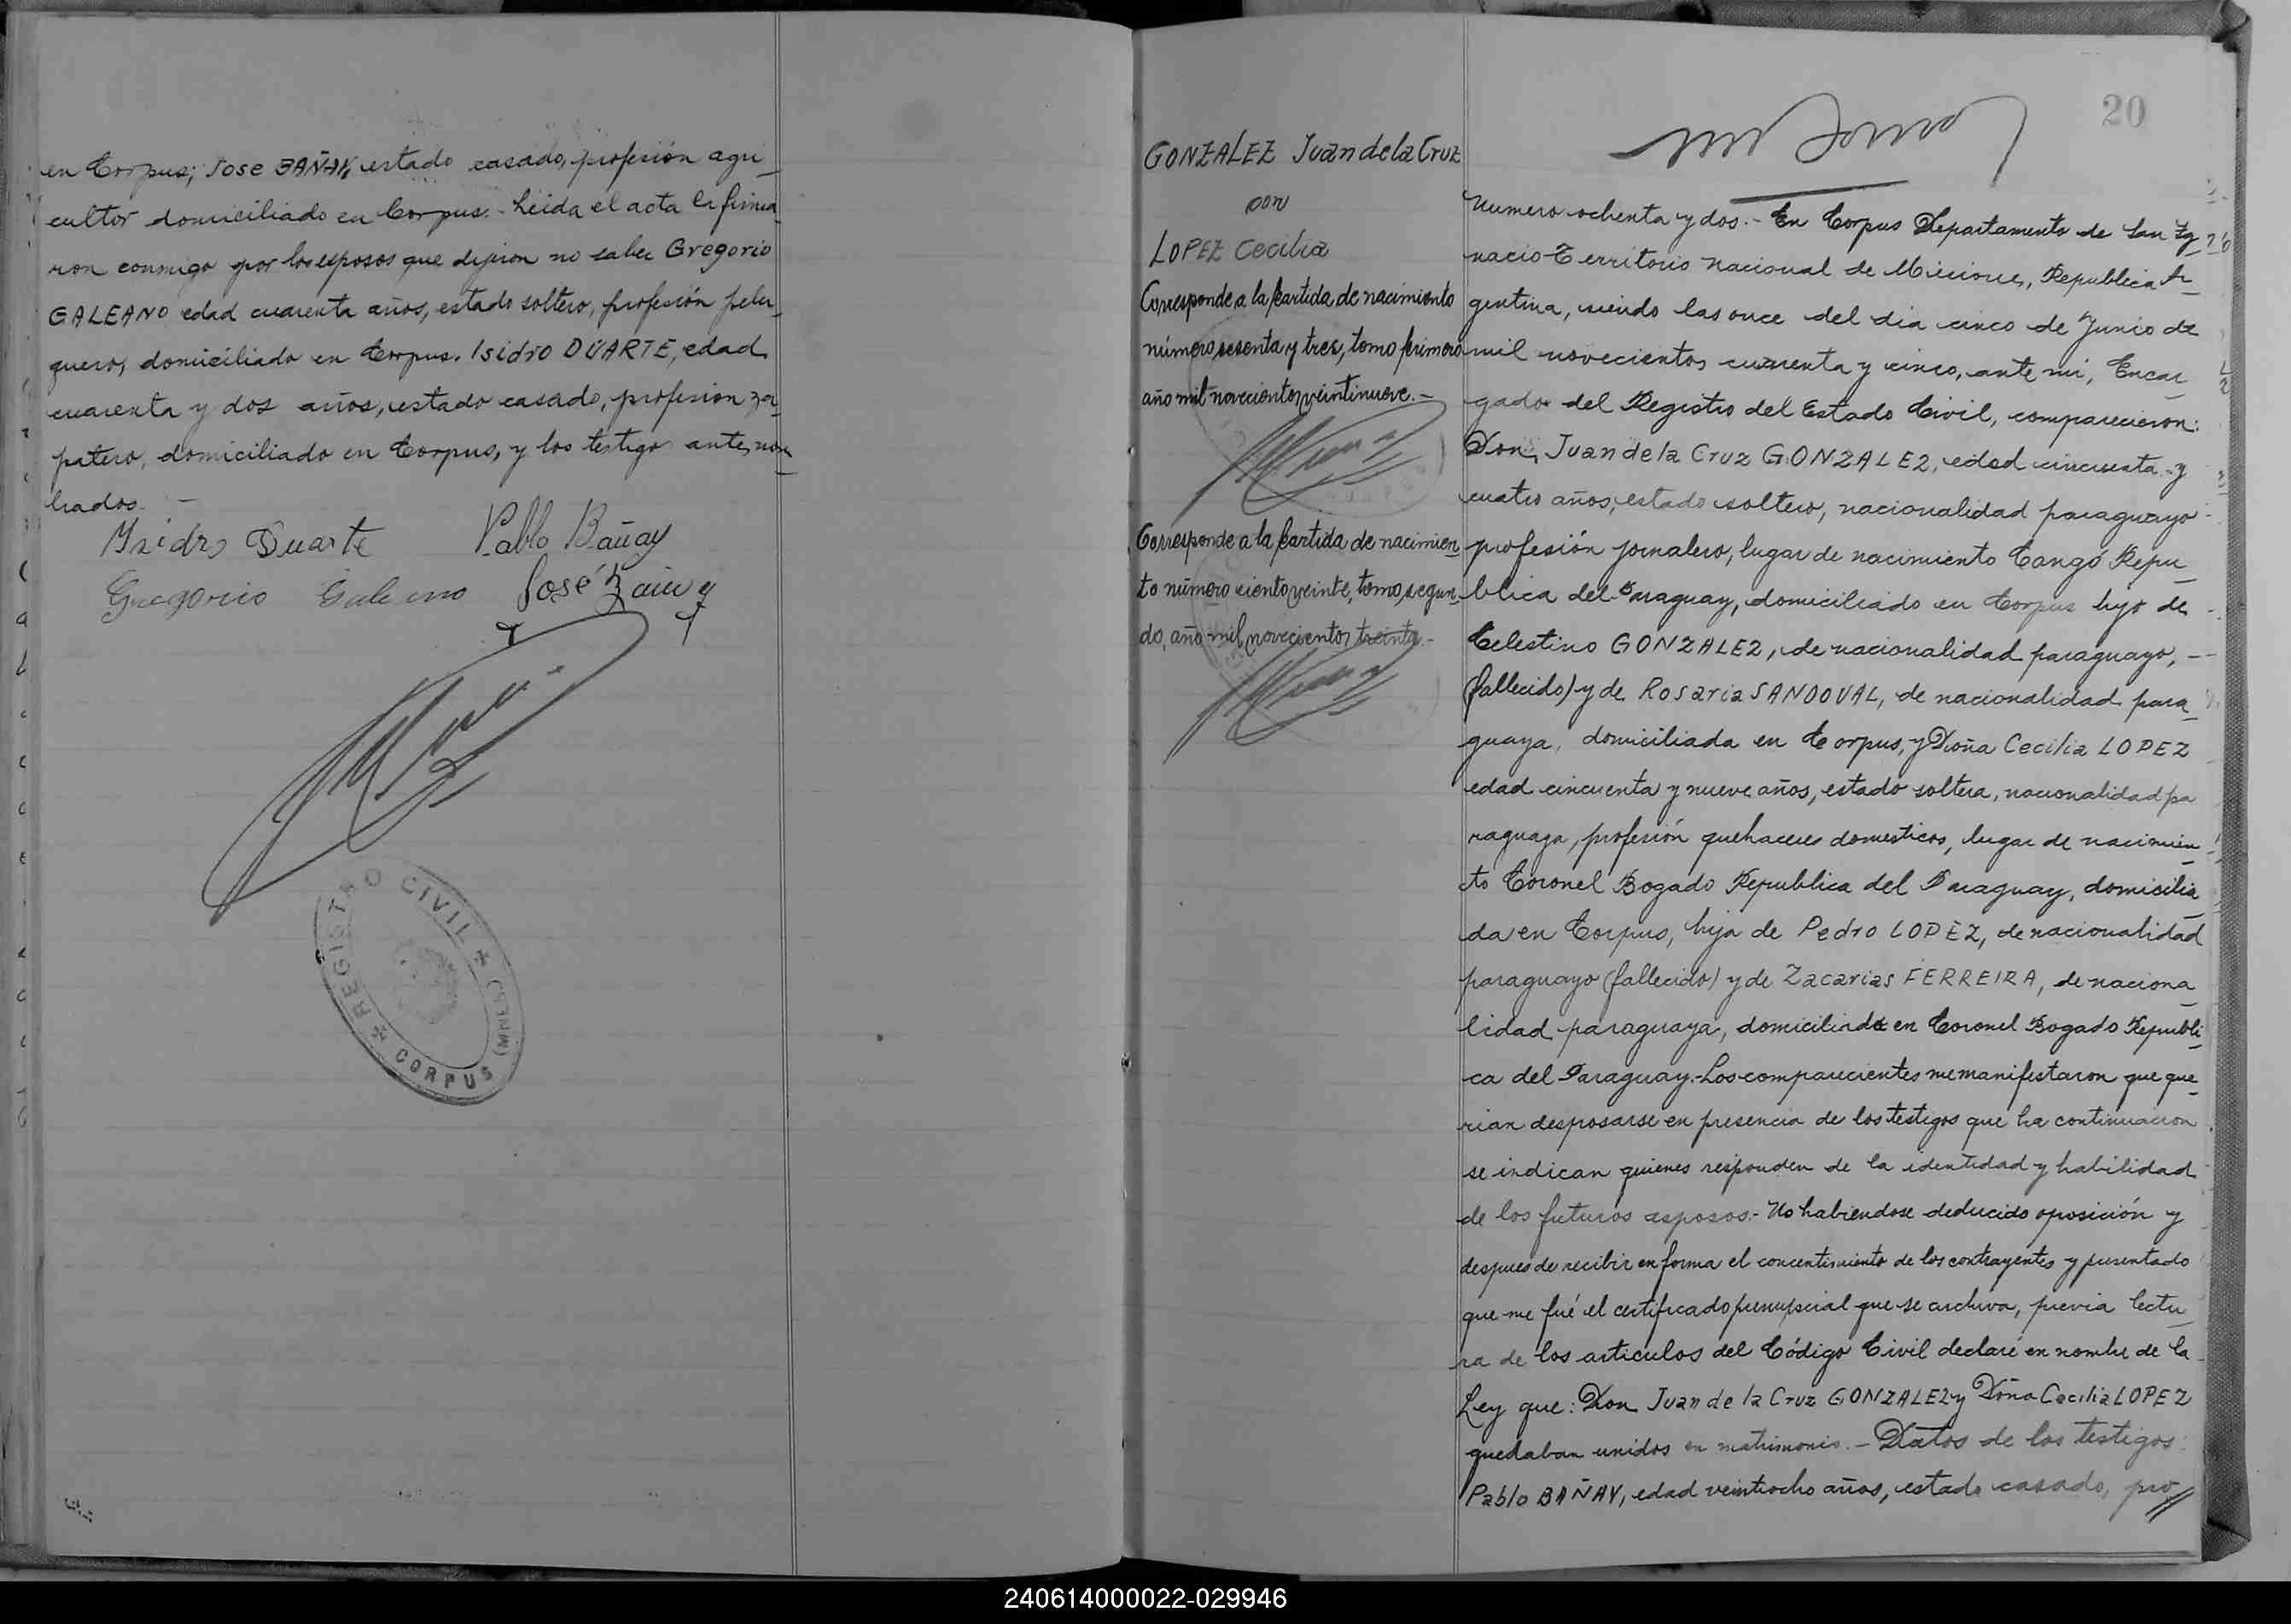 en Corpus; Jose BAÑAY, estado casado, profesión agri_
cultor domiciliado en Corpus.- Leida el acta la firma_
ron conmigo por los esposos que dijeron no saber Gregorio
GALEANO edad cuarenta años, estado soltero, profesión pelu_
quero, domiciliado en Corpus. Isidro DUARTE, edad
cuarenta y dos años, estado casado, profesion za_
patero, domiciliado en Corpus, y los testigo antes nom_
brados. -
Ysidro Duarte Pablo Bañay
Gregorio Galeano José Bañay
REGISTRO CIVIL
CORPUS (MNES.)
20
GONZALEZ Juan de la Cruz
con
LOPEZ Cecilia
Corresponde a la partida de nacimiento
número sesenta y tres, tomo primero
año mil novecientos veintinueve.-
Corresponde a la partida de nacimien_
to número ciento veinte, tomo segun_
do, año mil novecientos treinta.-
Numero ochenta y dos.- En Corpus Departamento de San Ig_
nacio Territorio Nacional de Misiones, Republica Ar_
gentina, siendo las once del dia cinco de Junio de
mil novecientos cuarenta y cinco, ante mi, Encar_
gado del Registro del Estado Civil, comparecieron:
Don, Juan de la Cruz GONZALEZ, edad cincuenta y
cuatro años, estado soltero, nacionalidad paraguayo
profesión jornalero, lugar de nacimiento Cangó Repu_
blica del Paraguay, domiciliado en Corpus hijo de
Celestino GONZALEZ, de nacionalidad paraguayo, -
(fallecido) y de Rosaria SANDOVAL, de nacionalidad para_
guaya, domiciliada en Corpus, y Doña Cecilia LOPEZ
edad cincuenta y nueve años, estado soltera, nacionalidad pa
raguaya, profesión quehaceres domesticos, lugar de nacimien_
to Coronel Bogado Republica del Paraguay, domicilia_
da en Corpus, hija de Pedro LOPEZ, de nacionalidad
paraguayo (fallecido) y de Zacarias FERREIRA, de naciona_
lidad paraguaya, domiciliada en Coronel Bogado Republi_
ca del Paraguay.- Los comparecientes me manifestaron que que_
rian desposarse en presencia de los testigos que ha continuacion
se indican quienes responden de la identidad y habilidad
de los futuros esposos.- No habiendose deducido oposición y
despues de recibir en forma el concentimiento de los contrayentes y presentado
que me fué el certificado prenupcial que se archiva, previa lectu_
ra de los articulos del Código Civil declaré en nombre de la
Ley que: Don Juan de la Cruz GONZALEZ y Doña Cecilia LOPEZ
quedaban unidos en matrimonio.- Datos de los testigos:
Pablo BAÑAY, edad veintiocho años, estado casado, pro_
240614000022-029946